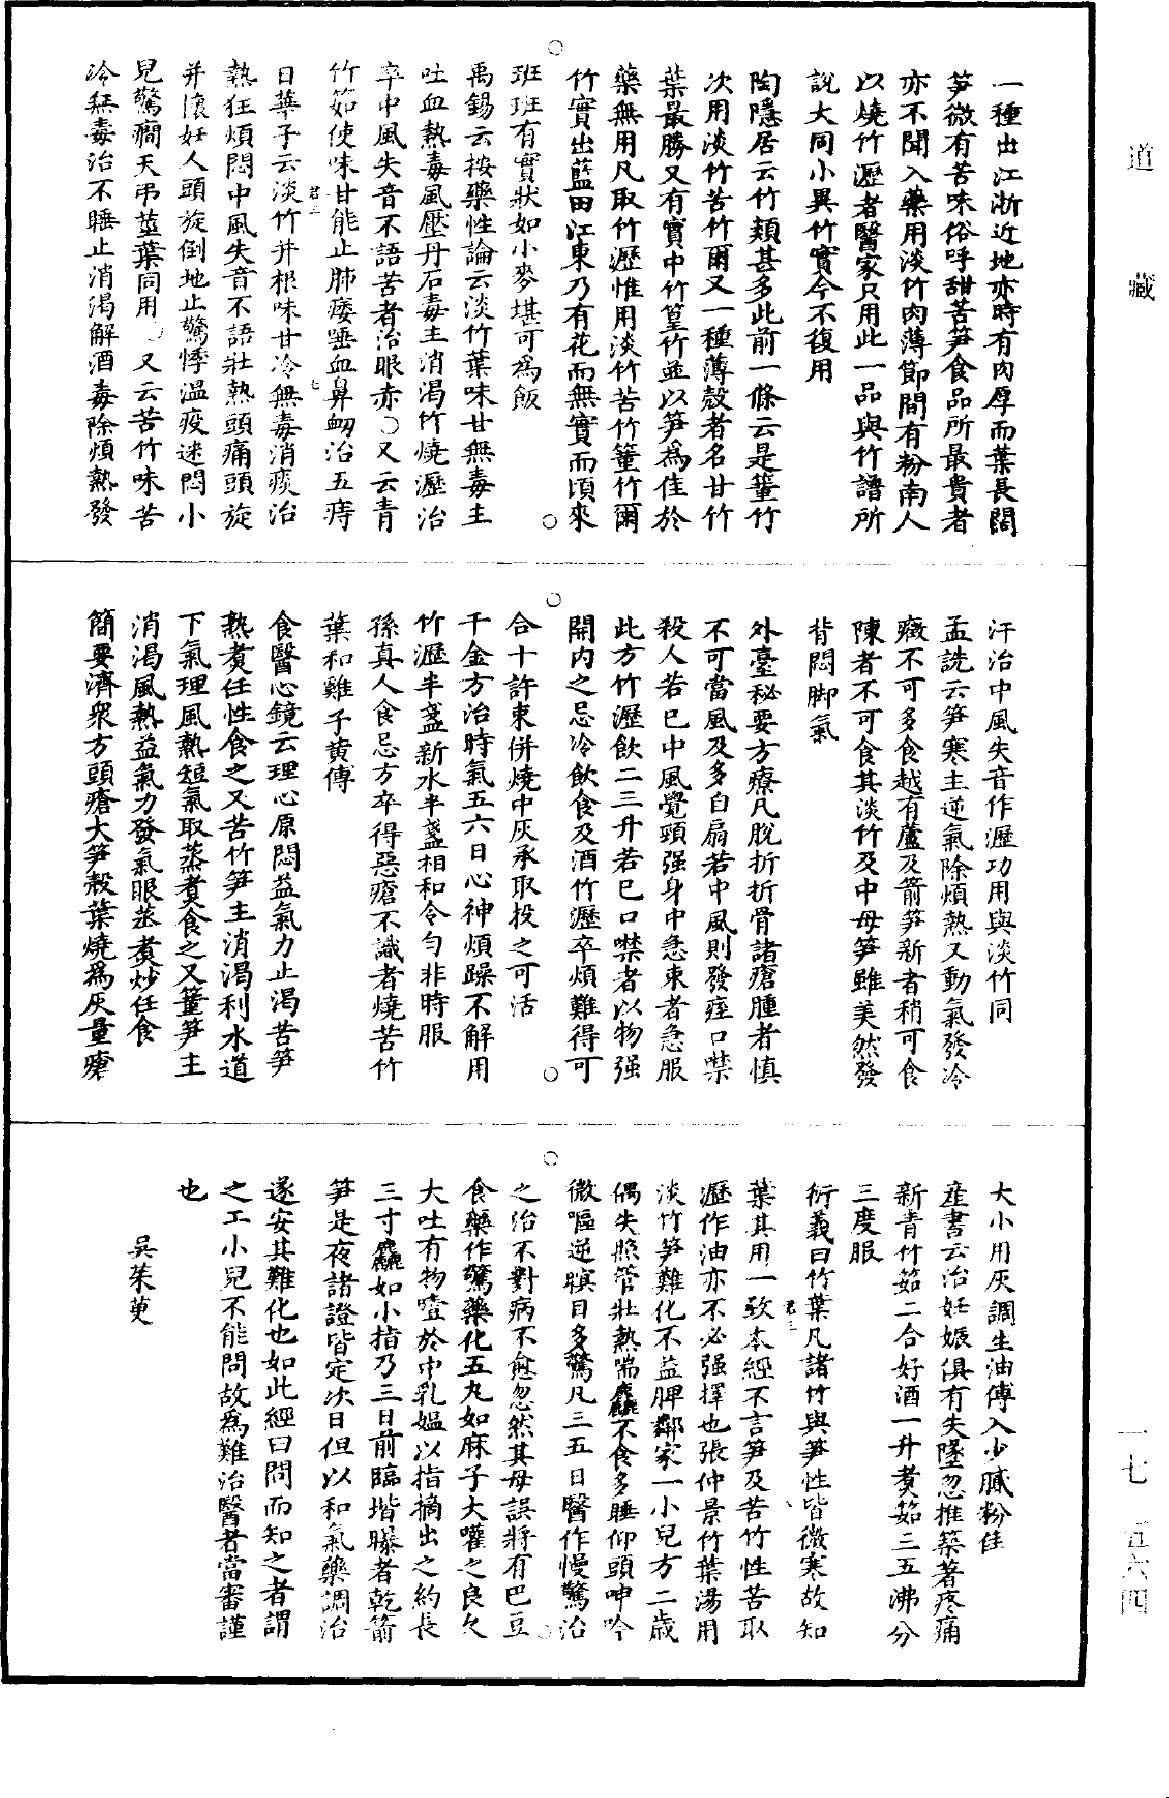 道藏
一種出江浙近地亦時有肉厚而葉長闊
笋微有苦味俗呼甜苦笋食品所最貴者
亦不聞入藥用淡竹肉薄節間有粉南人
以燒竹瀝者醫家只用此一品與竹譜所
說大同小異竹實今不復用
陶隱居云竹類甚多此前一條云是䈽竹
次用淡竹苦竹爾又一種薄殼者名甘竹
葉最勝又有實中竹篁竹並以笋為佳於
藥無用凡取竹瀝惟用淡竹苦竹䈽竹爾
竹實出藍田江東乃有花而無實而頃來
班班有實狀如小麥堪可為飯
禹錫云按藥性論云淡竹葉味甘無毒主
吐血熱毒風壓丹石毒主消渴竹燒瀝治
卒中風失音不語苦者治眼赤○又云青
竹茹使味甘能止肺痿唾血鼻衂治五痔
日華子云淡竹并根味甘冷無毒消痰治
熱狂煩悶中風失音不語壯熱頭痛頭旋
并懷妊人頭旋倒地止驚悸溫疫迷悶小
兒驚癇天弔莖葉同用○又云苦竹味苦
冷無毒治不睡止消渴解酒毒除煩熱發
汗治中風失音作瀝功用與淡竹同
孟詵云笋寒主逆氣除煩熱又動氣發冷
癥不可多食越有蘆及箭笋新者稍可食
陳者不可食其淡竹及中母笋雖美然發
背悶脚氣
外臺秘要方療凡脫折折骨諸瘡腫者慎
不可當風及多自扇若中風則發痓口禁
殺人若已中風覺頸强身中急束者急服
此方竹瀝飲二三升若已口噤者以物强
開內之忌冷飲食及酒竹瀝卒煩難得可
合十許束併燒中灰承取投之可活
千金方治時氣五六日心神煩躁不解用
竹瀝半盞新水半盞相和令勻非時服
孫真人食忌方卒得惡瘡不識者燒苦竹
葉和雞子黃傅
食醫心鏡云理心原悶益氣力止渴苦笋
熟煮任性食之又苦竹笋主消渴利水道
下氣理風熱短氣取蒸煮食之又䈽笋主
消渴風熱益氣力發氣眼蒸煮炒任食
簡要濟衆方頭瘡大笋殼葉燒為灰量瘡
大小用灰調生油傅入少膩粉佳
產書云治妊娠俱有失墜忽推築著疼痛
新青竹茹二合好酒一升煮茹三五沸分
三度服
衍義曰竹葉凡諸竹與笋性皆微寒故知
葉其用一致本經不言笋及苦竹性苦取
瀝作油亦不必强擇也張仲景竹葉湯用
淡竹笋難化不益脾鄰家一小兒方二歲
偶失照管壯熱喘麤不食多睡仰頭呻吟
微嘔逆瞑目多驚凡三五日醫作慢驚治
之治不對病不愈忽然其母誤將有巴豆
食藥作驚藥化五丸如麻子大灌之良久
大吐有物噎於中乳媪以指摘出之約長
三寸麤如小指乃三日前臨堦曝者乾箭
笋是夜諸證皆定次日但以和氣藥調治
遂安其難化也如此經曰問而知之者謂
之工小兒不能問故為難治醫者當審謹
也
吳茱萸
一七 五六四